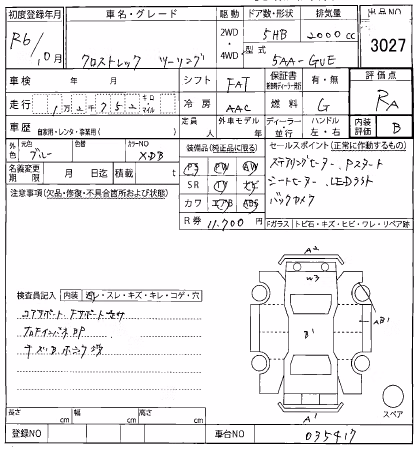 初度登録年月 車名・グレード 駆動 ドア数・形状 排気量 出品NO
R6/10月 クロストレック ツーリング 2WD・4WD 5HB 2000cc 3027
型式 5AA-GUE
車検 年 月 シフト FAT 保証書 有・無 評価点
走行 1万2千752 キロ マイル 冷房 AAC 燃料 G RA
車歴 自家用・レンタ・事業用( ) 定員 人 外車モデル 年 ディーラー 並行 ハンドル 左・右 内装評価 B
外色 元色 ブルー 色替 カラーNO XDB 装備品(純正品に限る) セールスポイント(正常に作動するもの)
名義変更期限 月 日迄 積載 t PS PW AW ステアリングヒーター、Pスタート
SR TV ナビ シートヒーター、LEDライト
カワ エアB ABS バックカメラ
R券 11,700円
注意事項(欠品・修復・不具合箇所および状態) Fガラス トビ石・キズ・ヒビ・ワレ・リペア跡
A2
W3
B1
AB1
A1
検査員記入 内装 汚・スレ・キズ・キレ・コゲ・穴
スペア
長さ cm 幅 cm 高さ cm
登録NO 車台NO 035417